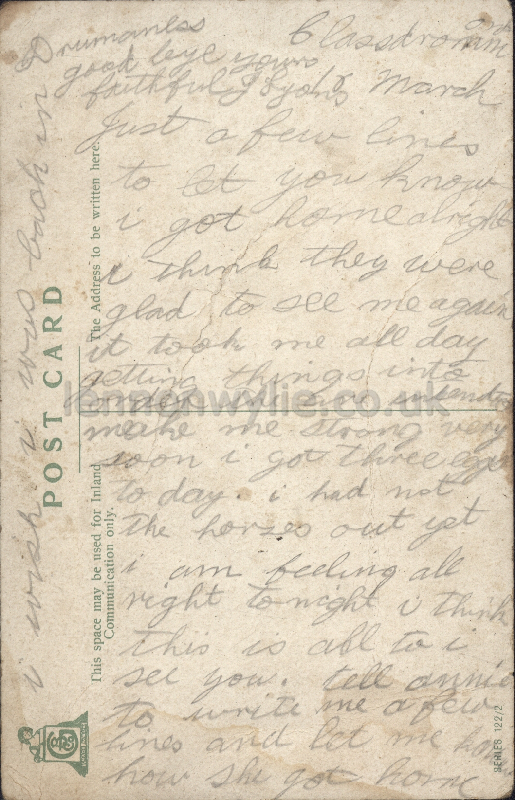 Drumaness
good bye yours
faithfully
March
Just a few lines
to let you know
i got home alright
i think they were
glad to see me again
it took me all day
getting things into
make me strong very
soon i got three eggs
to day. i had not
the horses out yet
i am feeling all
right tonight i think
this is all to i
see you. tell annie
to write me a few
lines and let me know
how she got home
i wish i was back in
POST CARD
The Address to be written here.
This space may be used for Inland
Communication only.
SERIES 122/2
lennonwylie.co.uk